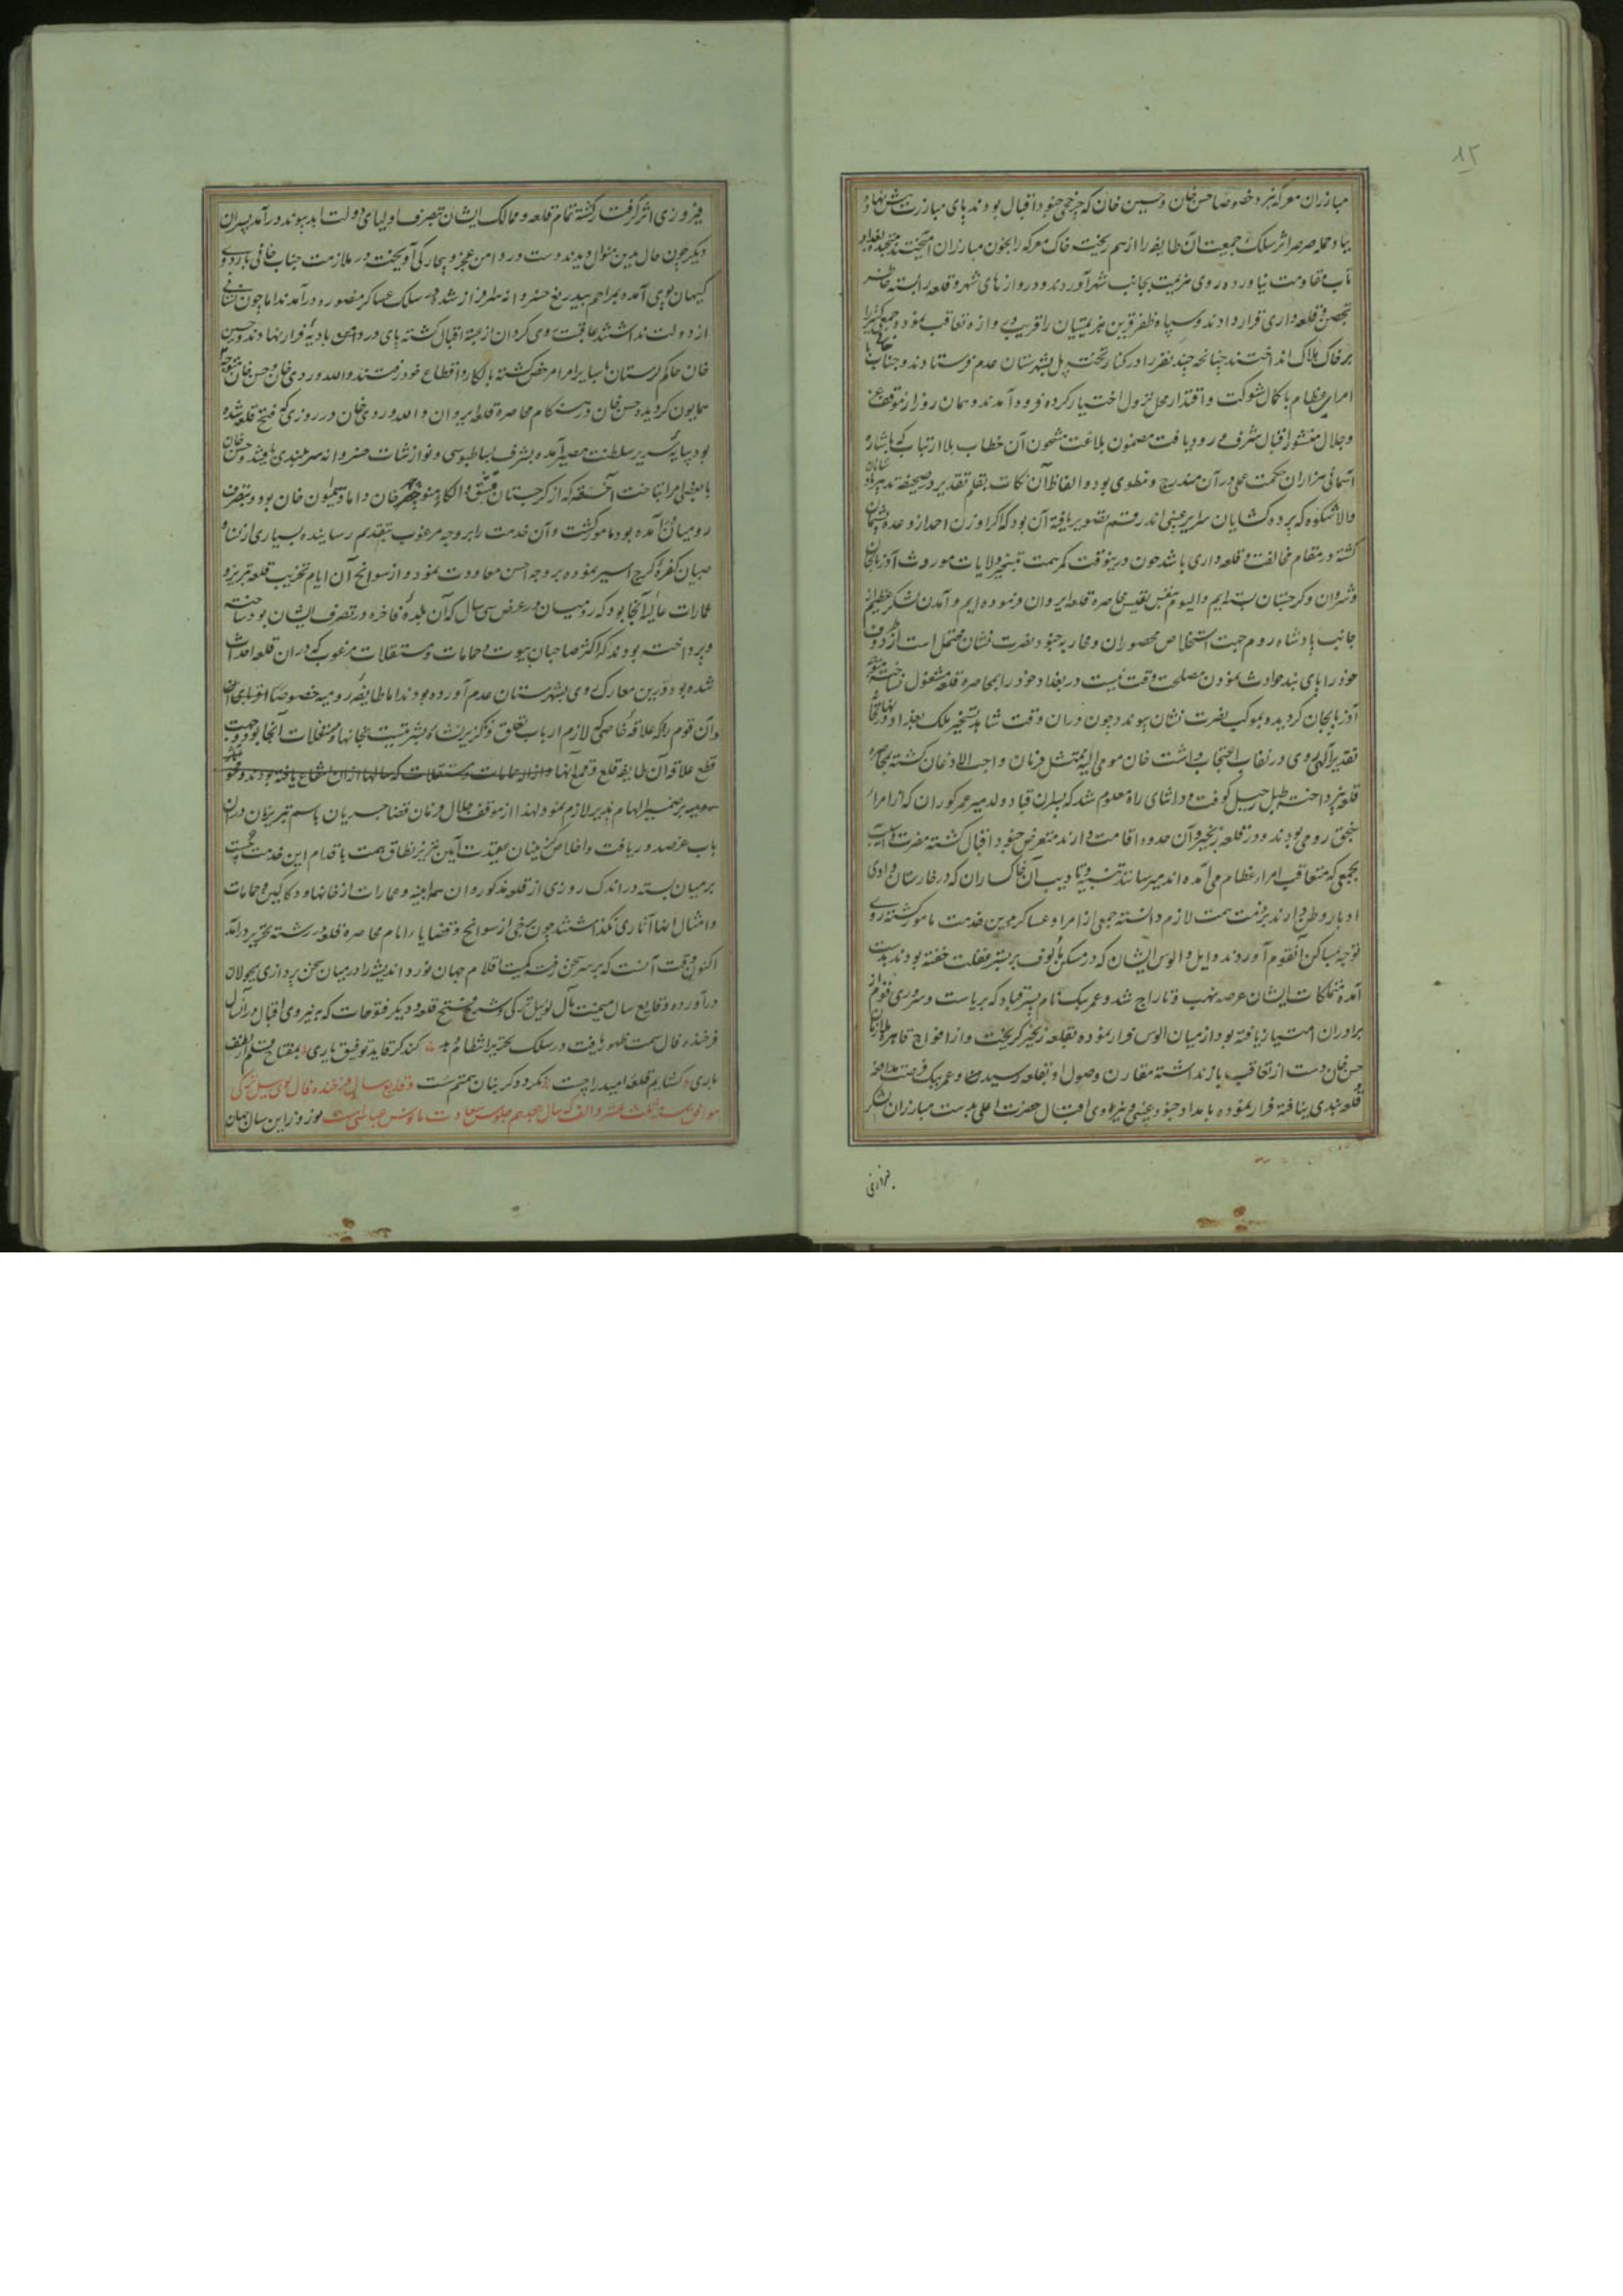 ۸۲
مبارزان معرکه نبرد خصوصا حسن خان و حسین خان که چرخچی جنود اقبال بودند پای مبارزت پیش نهاده
بباد حمله صرصر اثر سلک جمعیت آن طایفه را از هم ریخته خاک معرکه را بخون مبارزان آمیختند متجنده بغداد
تاب مقاومت نیاورده روی هزیمت بجانب شهر آوردند و دروازهای شهر و قلعه را بسته خاطر
بتحصن و قلعه داری قرار دادند و سپاه ظفر قرین هزیمتیان را قریب بدروازه تعاقب نموده جمعی کثیر را
بر خاک هلاک انداختند چنانچه چند نفر را در کنار تخته پل بشهرستان عدم فرستادند و جناب خانی با
امرای عظام با کمال شوکت و اقتدار محل نزول اختیار کرده فرود آمدند و همان روز از موقف عز
وجلال منشور اقبال شرف ورود یافت مضمون بلاغت مشحون آن خطاب بلا ارتیاب که باشاره
آسمانی هزاران حکمت عملی در آن مندرج و منطوی بود و الفاظ آن کات بقلم تقدیر در صحیفه تدبیر
والا شکوه که پرده گشایان سرایر غیبی اند رقم تصویر یافته آن بود که اگر اوزن احمد از وعده پشیمان
گشته در مقام مخالفت و قلعه داری باشد چون درینوقت کمر همت بتسخیر ولایات موروث آذربایجان
و شروان و گرجستان بسته ایم و الیوم بنفس نفیس محاصره قلعه ایروان فرموده ایم و آمدن لشکر عظیم از
جانب پادشاه روم جهت استخلاص محصوران و محاربه جنود نصرت نشان محتمل است از وقوف
خود را پای بند حوادث نمودن مصلحت وقت نیست در بغداد خود را بمحاصره قلعه مشغول نساخته متوجه
آذربایجان گردیده بموکب نصرت نشان پیوندد چون در آن وقت شاهد تسخیر ملک بغداد
تقدیر الهی روی در نقاب احتجاب داشت خان مومی الیه ممتثل فرمان واجب الاذعان گشته بمحاصره
قلعه نپرداخته طبل رحیل کوفت و در اثنای راه معلوم شد که پسران قباد ولد میر عمر کوران که از امراء
سنجق رومی بودند و در قلعه زنجیر و آن حدود اقامت دارند متعرض جنود اقبال گشته مضرت و آسیب
بجمعی که متعاقب امراء عظام می آمده اند میرسانند تنبیه و تادیب آن خاکساران که در خارستان وادی
ادبار وطن دارند بر ذمت همت لازم دانسته جمعی از امرا و عساکر بدین خدمت مامور گشته روی
توجه بمساکن آنقوم آوردند و ایل و الوس ایشان که در مسکن مالوف بر بستر غفلت خفته بودند بدست
آمده متملکات ایشان عرصه نهب و تاراج شد و عمر بیک نام پسر قباد که بریاست و سروری قوم از
برادران امتیاز یافته بود از میان الوس فرار نموده بقلعه زنجیر گریخت و از افواج قاهره ملازمان
حسن خان دست از تعاقب باز نداشته مقارن وصول او بقلعه رسیدند و عمر بیک فرصت مدافعه
و قلعه بندی نیافته فرار نموده بامداد جنود غیبی و نیروی اقبال حضرت اعلی بدست مبارزان لشکر
فیروزی
فیروزی اثر گرفتار گشته تمام قلعه و ممالک ایشان بتصرف اولیای دولت ابد پیوند درآمد پسران
دیگر چون حال بدین منوال دیدند دست در دامن عجز و بیچارگی آویخته در ملازمت جناب خانی باردوی
کیهان پوی آمده بمراحم بیدریغ خسروانه سرافراز شده در سلک عساکر منصوره درآمدند اما چون شانی
از دولت نداشتند عاقبت روی گردان از عتبه اقبال گشته پای در دامن بادیه فرار نهادند و حسین
خان حاکم لرستان با سایر امرا مرخص گشته بالکا و اقطاع خود رفتند و الله وردی خان و حسن خان متوجه
همایون گردیده حسن خان در هنگام محاصره قلعه ایروان و الله وردی خان در روزی که فتح قلعه شده
بود بپایه سریر سلطنت مصیر آمده بشرف بساط بوسی و نوازشات خسروانه سربلندی یافتند و حسن خان
با بعضی امرا بتاخت آخسقه که از گرجستان مسق و الکاء منوچهر خان داماد سیمون خان بود و بتصرف
رومیان آمده بود مامور گشت و آن خدمت را بر وجه مرغوب بتقدیم رسانیده بسیاری از نسا و
صبیان کفره گرج اسیر نموده بر وجه احسن معاودت نمود و از سوانح آن ایام تخریب قلعه تبریز و
عمارات عالیه آنجا بود که رومیان در عرض سی سال که آن بلده فاخره در تصرف ایشان بود ساخته
و پرداخته بودند که اکثر صاحبان بیوت و حمامات و مستغلات مرغوب که در آن قلعه احداث
شده بود درین معارک روی بشهرستان عدم آورده بودند اما طایفه رومیه خصوصا
و آن قوم را که علاقه خاصی که لازم ارباب تعلق و ناگزیر نشاه بشریتست بخانها و مستغلات آنجا بود جهت
قطع علاقه آن طایفه قلع و قمع آنها
بر ضمیر الهام پذیر لازم نمود لهذا از موقف جلال فرمان قضا جریان باسم تبریزیان در آن
باب عز صدور یافت و اخلاص گزینان عقیدت آیین تبریز نطاق همت باقدام این خدمت چست
بر میان بسته در اندک روزی از قلعه مذکور و آن همه ابنیه و عمارات از خانها و دکاکین و حمامات
و امثال اینها آثاری نگذاشتند چون برخی از سوانح و قضایا را ایام محاصره قلعه در رشته تحریر درآمد
اکنون وقت آنست که بر سر سخن رفته کمیت اقلام جهان نورد اندیشه را در میدان سخن پردازی بجولان
درآورده وقایع سال میمنت مآل توشقان ییل ترکی و شرح فتح قلعه و دیگر فتوحات که به نیروی اقبال در آنسال
فرخنده فال سمت ظهور یافت در سلک تحریر انتظام دهد کند گر قاید توفیق یاری بمفتاح قلم از لطف
باری گشایم قلعه امید را چست نگردد گر بنان همتم سست وقایع سال فرخنده فال ییل ترکی
موافق سنه ثلث عشر و الف که سال هجدهم جلوس سعادت مانوس عباسی است نوروز این سال همان